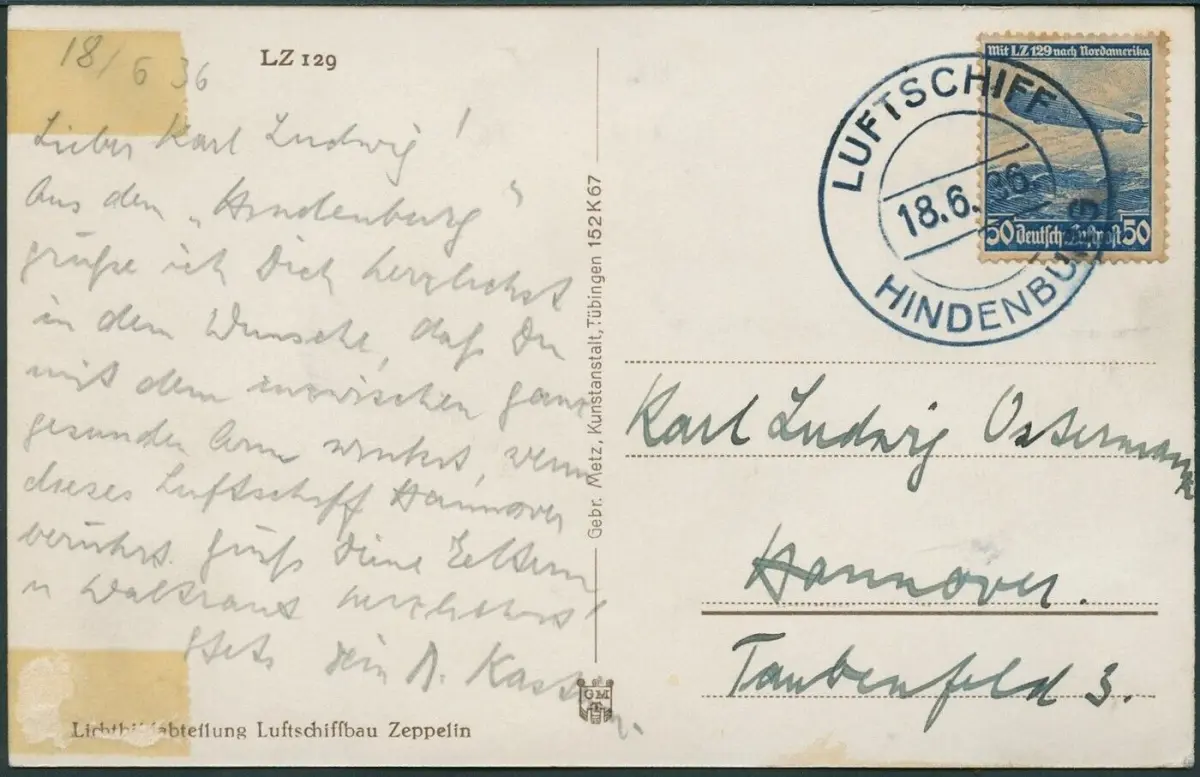 18/6 36
LZ 129
Lieber Karl Ludwig!
Aus dem „Hindenburg"
grüße ich Dich herzlichst
in dem Wunsche, daß Du
mit dem inzwischen ganz
gesunden Arm winkst, wenn
dieses Luftschiff Hannover
berührt. Grüß Deine Eltern
u Waltraut herzlichst!
Stets Dein
Lichtbildabteilung Luftschiffbau Zeppelin
Gebr. Metz, Kunstanstalt, Tübingen 152 K 67
GM
T
LUFTSCHIFF
18.6.36.
HINDENBURG
Mit LZ 129 nach Nordamerika
50 Deutsche Luftpost 50
Karl Ludwig Ostermann
Hannover.
Taubenfeld 3.